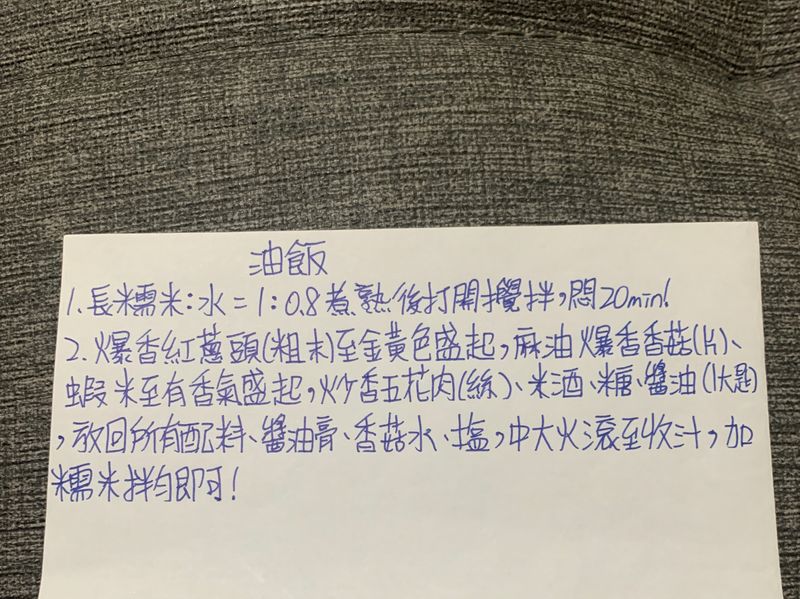 油飯
1. 長糯米:水=1:0.8煮熟後打開攪拌,悶20min!
2. 爆香紅蔥頭(粗末)至金黃色盛起,麻油爆香香菇(片)、
蝦米至有香氣盛起,炒香五花肉(絲)、米酒、糖、醬油(1大匙)
,放回所有配料、醬油膏、香菇水、塩,中大火滾至收汁,加
糯米拌均即可!